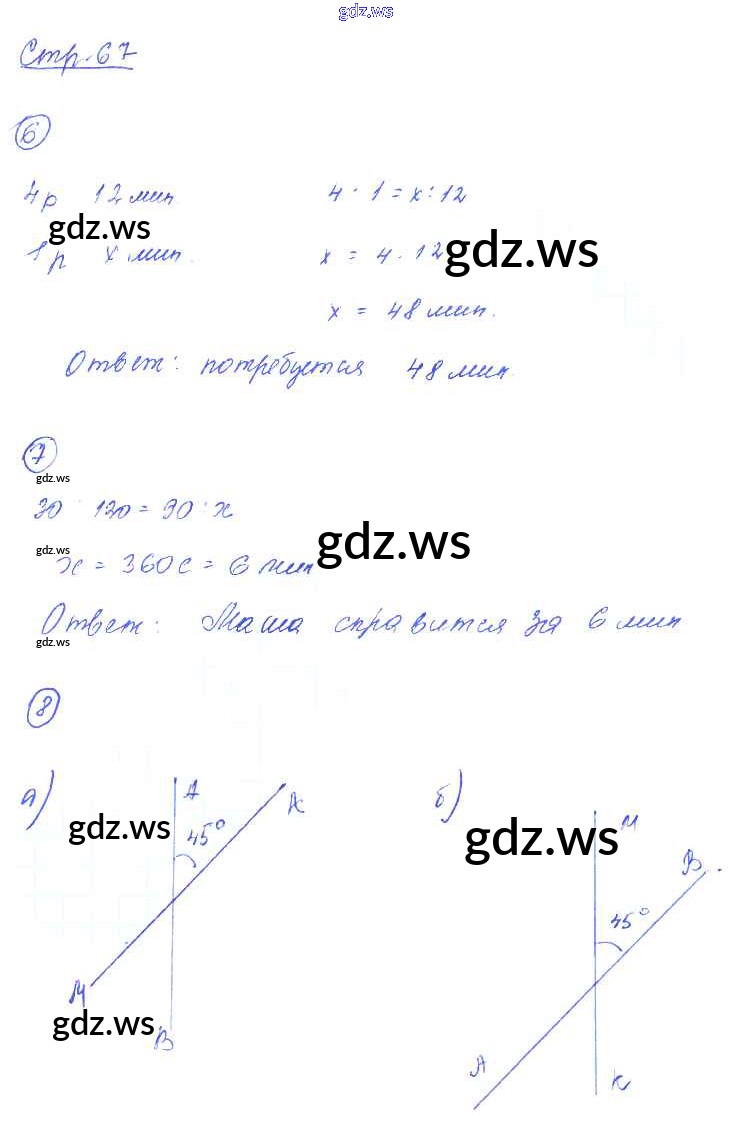 gdz.ws
Стр. 67
6
4р 12 мин 4 : 1 = x : 12
gdz.ws
1р x мин. x = 4 · 12 gdz.ws
x = 48 мин.
Ответ: потребуется 48 мин.
7
gdz.ws
30 : 120 = 90 : x
gdz.ws
x = 360с = 6 мин gdz.ws
Ответ: Маша справится за 6 мин
gdz.ws
8
а) A К б) М
gdz.ws 45° gdz.ws
В
45°
М
gdz.ws
В
А К